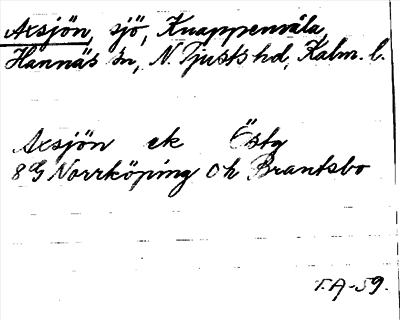 Axsjön, sjö, Knappenvåla,
Hannäs sn, N. Tjusts hd, Kalm. l.
Axsjön ek Östg
8G Norrköping 0h Brantsbo
T.A-59.